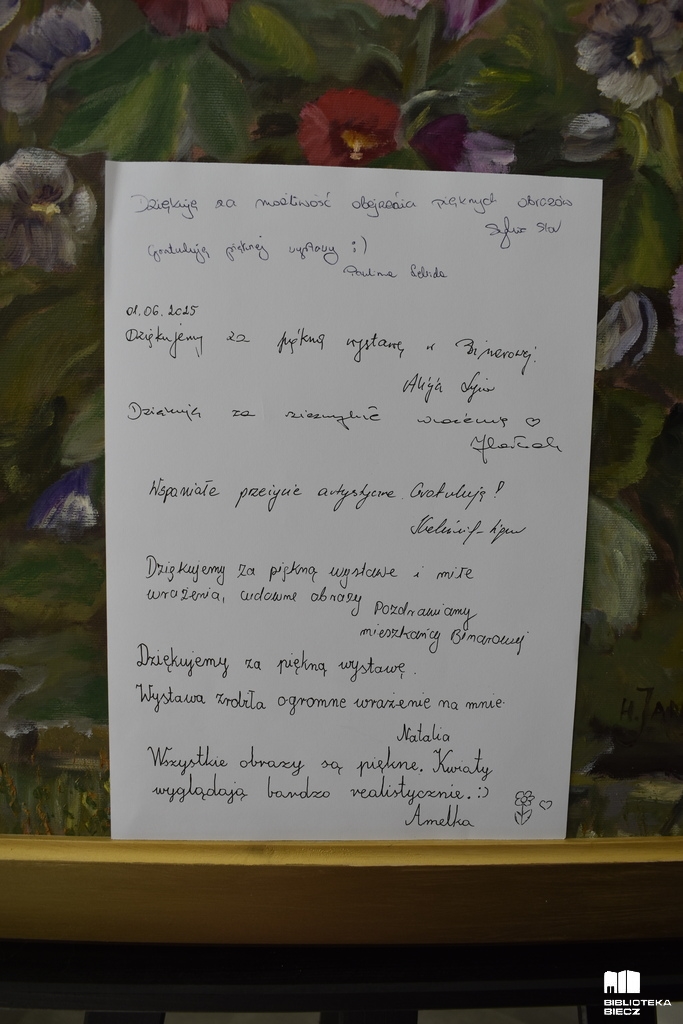 Dziękuję za możliwość obejrzenia pięknych obrazów
Gratuluję pięknej wystawy :)
Paulina
01.06.2025
Dziękujemy za piękną wystawę w Binarowej.
Alicja
Dziękuję za niezwykłe wrażenia ♡
Wspaniałe przeżycie artystyczne. Gratuluję!
Dziękujemy za piękną wystawe i miłe
wrażenia, cudowne obrazy
Pozdrawiamy
mieszkańcy Binarowej
Dziękujemy za piękną wystawę.
Wystawa zrobiła ogromne wrażenie na mnie.
Natalia
Wszystkie obrazy są piękne. Kwiaty
wyglądają bardzo realistycznie. :)
Amelka
BIBLIOTEKA
BIECZ